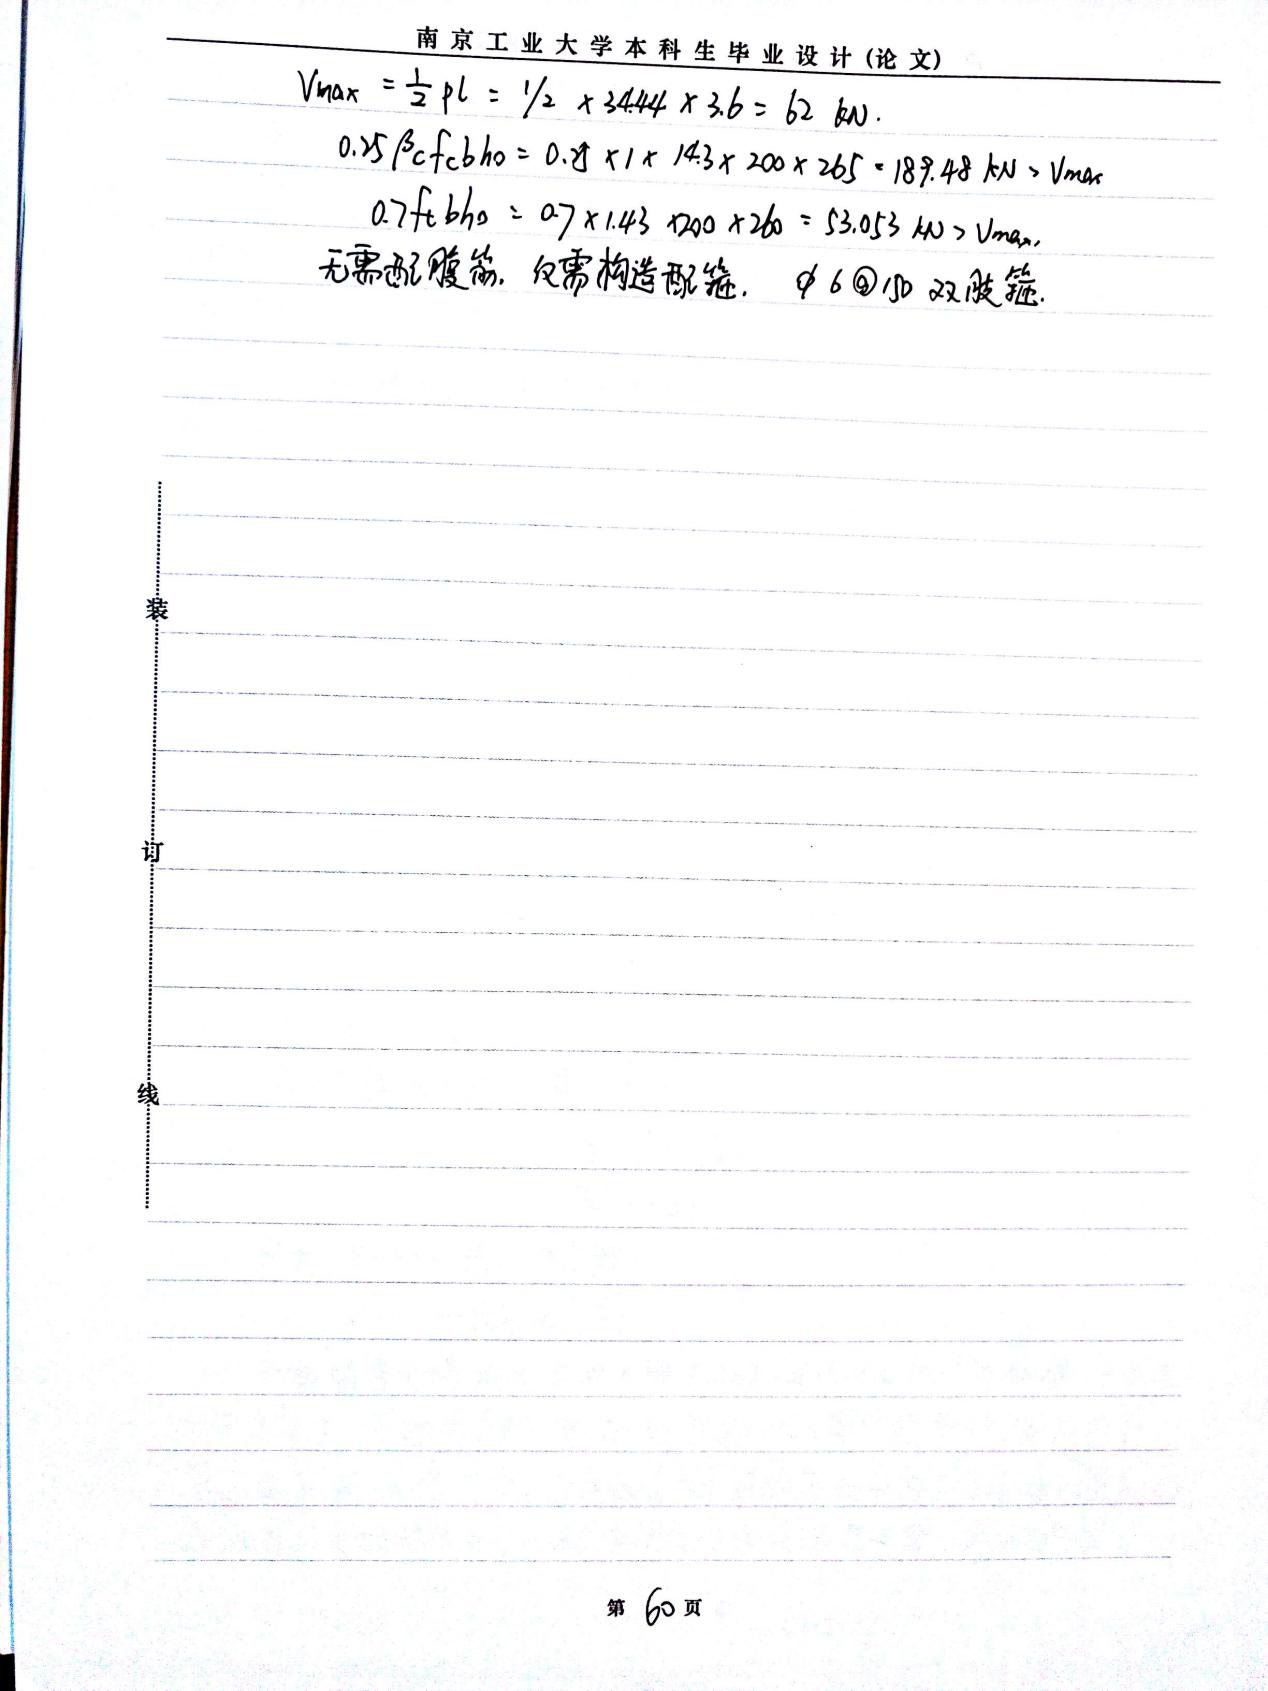 南京工业大学本科生毕业设计(论文)
Vmax = 1/2 pl = 1/2 × 34.44 × 3.6 = 62 kN.
0.25βcfcbh0 = 0.25 × 1 × 14.3 × 200 × 265 = 189.48 kN > Vmax
0.7ftbh0 = 0.7 × 1.43 × 200 × 260 = 53.053 kN > Vmax,
无需配腹筋. 仅需构造配箍. φ6@150 双肢箍.
装
订
线
第 60 页